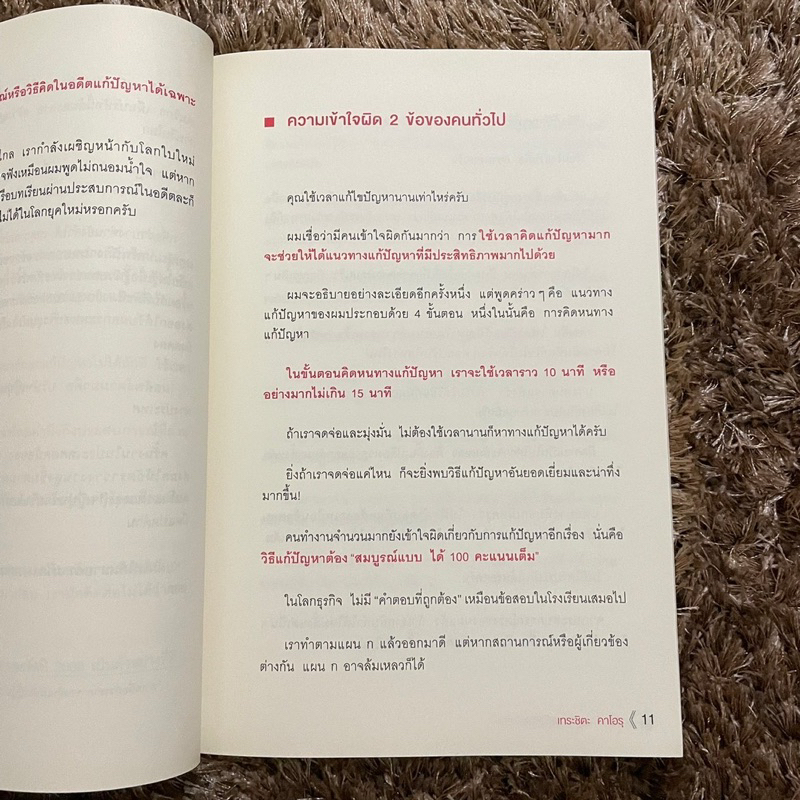 ณ์หรือวิธีคิดในอดีตแก้ปัญหาได้เฉพาะ
ไกล เรากำลังเผชิญหน้ากับโลกใบใหม่
จฟังเหมือนผมพูดไม่ถนอมน้ำใจ แต่หาก
รือบทเรียนผ่านประสบการณ์ในอดีตละก็
ไม่ได้ในโลกยุคใหม่หรอกครับ
■ ความเข้าใจผิด 2 ข้อของคนทั่วไป
คุณใช้เวลาแก้ไขปัญหานานเท่าไหร่ครับ
ผมเชื่อว่ามีคนเข้าใจผิดกันมากว่า การใช้เวลาคิดแก้ปัญหามาก
จะช่วยให้ได้แนวทางแก้ปัญหาที่มีประสิทธิภาพมากไปด้วย
ผมจะอธิบายอย่างละเอียดอีกครั้งหนึ่ง แต่พูดคร่าว ๆ คือ แนวทาง
แก้ปัญหาของผมประกอบด้วย 4 ขั้นตอน หนึ่งในนั้นคือ การคิดหนทาง
แก้ปัญหา
ในขั้นตอนคิดหนทางแก้ปัญหา เราจะใช้เวลาราว 10 นาที หรือ
อย่างมากไม่เกิน 15 นาที
ถ้าเราจดจ่อและมุ่งมั่น ไม่ต้องใช้เวลานานก็หาทางแก้ปัญหาได้ครับ
ยิ่งถ้าเราจดจ่อแค่ไหน ก็จะยิ่งพบวิธีแก้ปัญหาอันยอดเยี่ยมและน่าทึ่ง
มากขึ้น!
คนทำงานจำนวนมากยังเข้าใจผิดเกี่ยวกับการแก้ปัญหาอีกเรื่อง นั่นคือ
วิธีแก้ปัญหาต้อง “สมบูรณ์แบบ ได้ 100 คะแนนเต็ม”
ในโลกธุรกิจ ไม่มี “คำตอบที่ถูกต้อง” เหมือนข้อสอบในโรงเรียนเสมอไป
เราทำตามแผน ก แล้วออกมาดี แต่หากสถานการณ์หรือผู้เกี่ยวข้อง
ต่างกัน แผน ก อาจล้มเหลวก็ได้
เทระชิตะ คาโอรุ 《 11